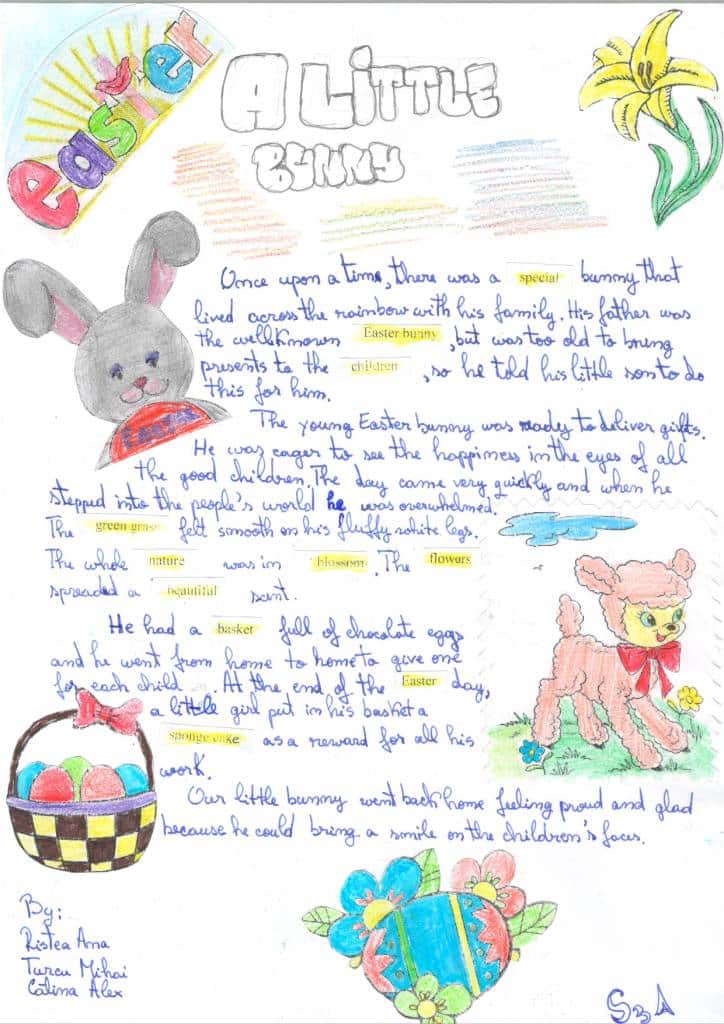 easter
A LiTTLE
BUNNY
Once upon a time, there was a special bunny that
lived across the rainbow with his family. His father was
the wellknown Easter bunny, but was too old to bring
presents to the children, so he told his little son to do
this for him.
The young Easter bunny was ready to deliver gifts.
He was eager to see the happiness in the eyes of all
the good children. The day came very quickly and when he
stepped into the people's world he was overwhelmed.
The green grass felt smooth on his fluffy white legs.
The whole nature was in blossom. The flowers
spreaded a beautiful scent.
He had a basket full of chocolate eggs
and he went from home to home to give one
for each child. At the end of the Easter day,
a little girl put in his basket a
sponge cake as a reward for all his
work.
Our little bunny went back home feeling proud and glad
because he could bring a smile on the children's faces.
By:
Ristea Ana
Turcu Mihai
Calina Alex